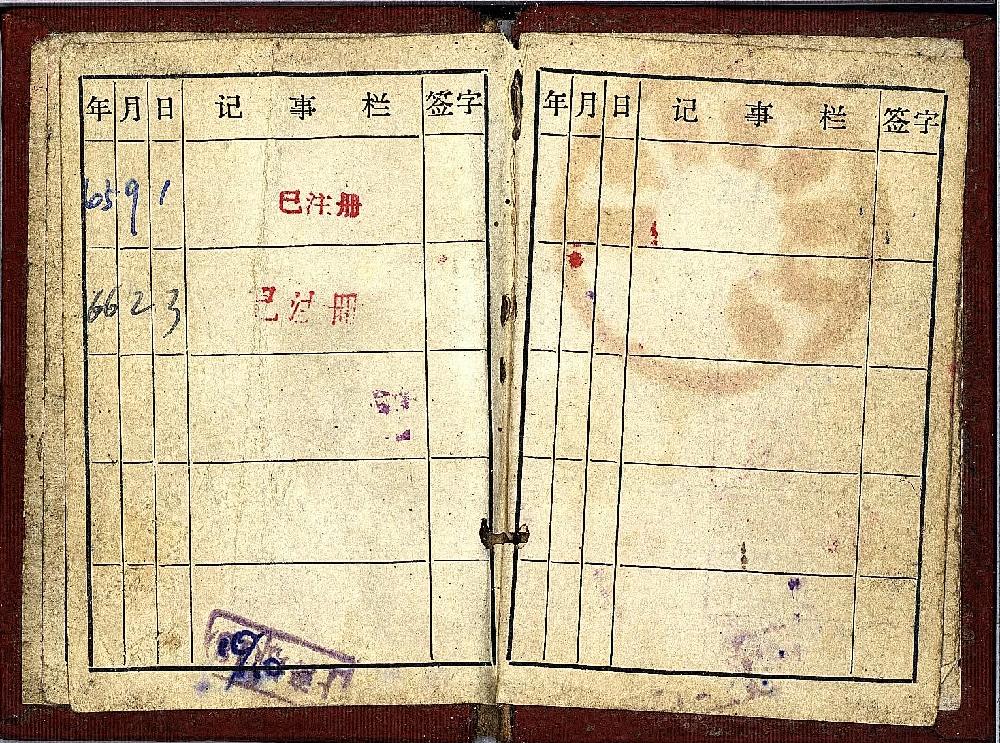 年 月 日 记 事 栏 签字
65 9 1 已注册
66 2 3 已注册
19/10
年 月 日 记 事 栏 签字